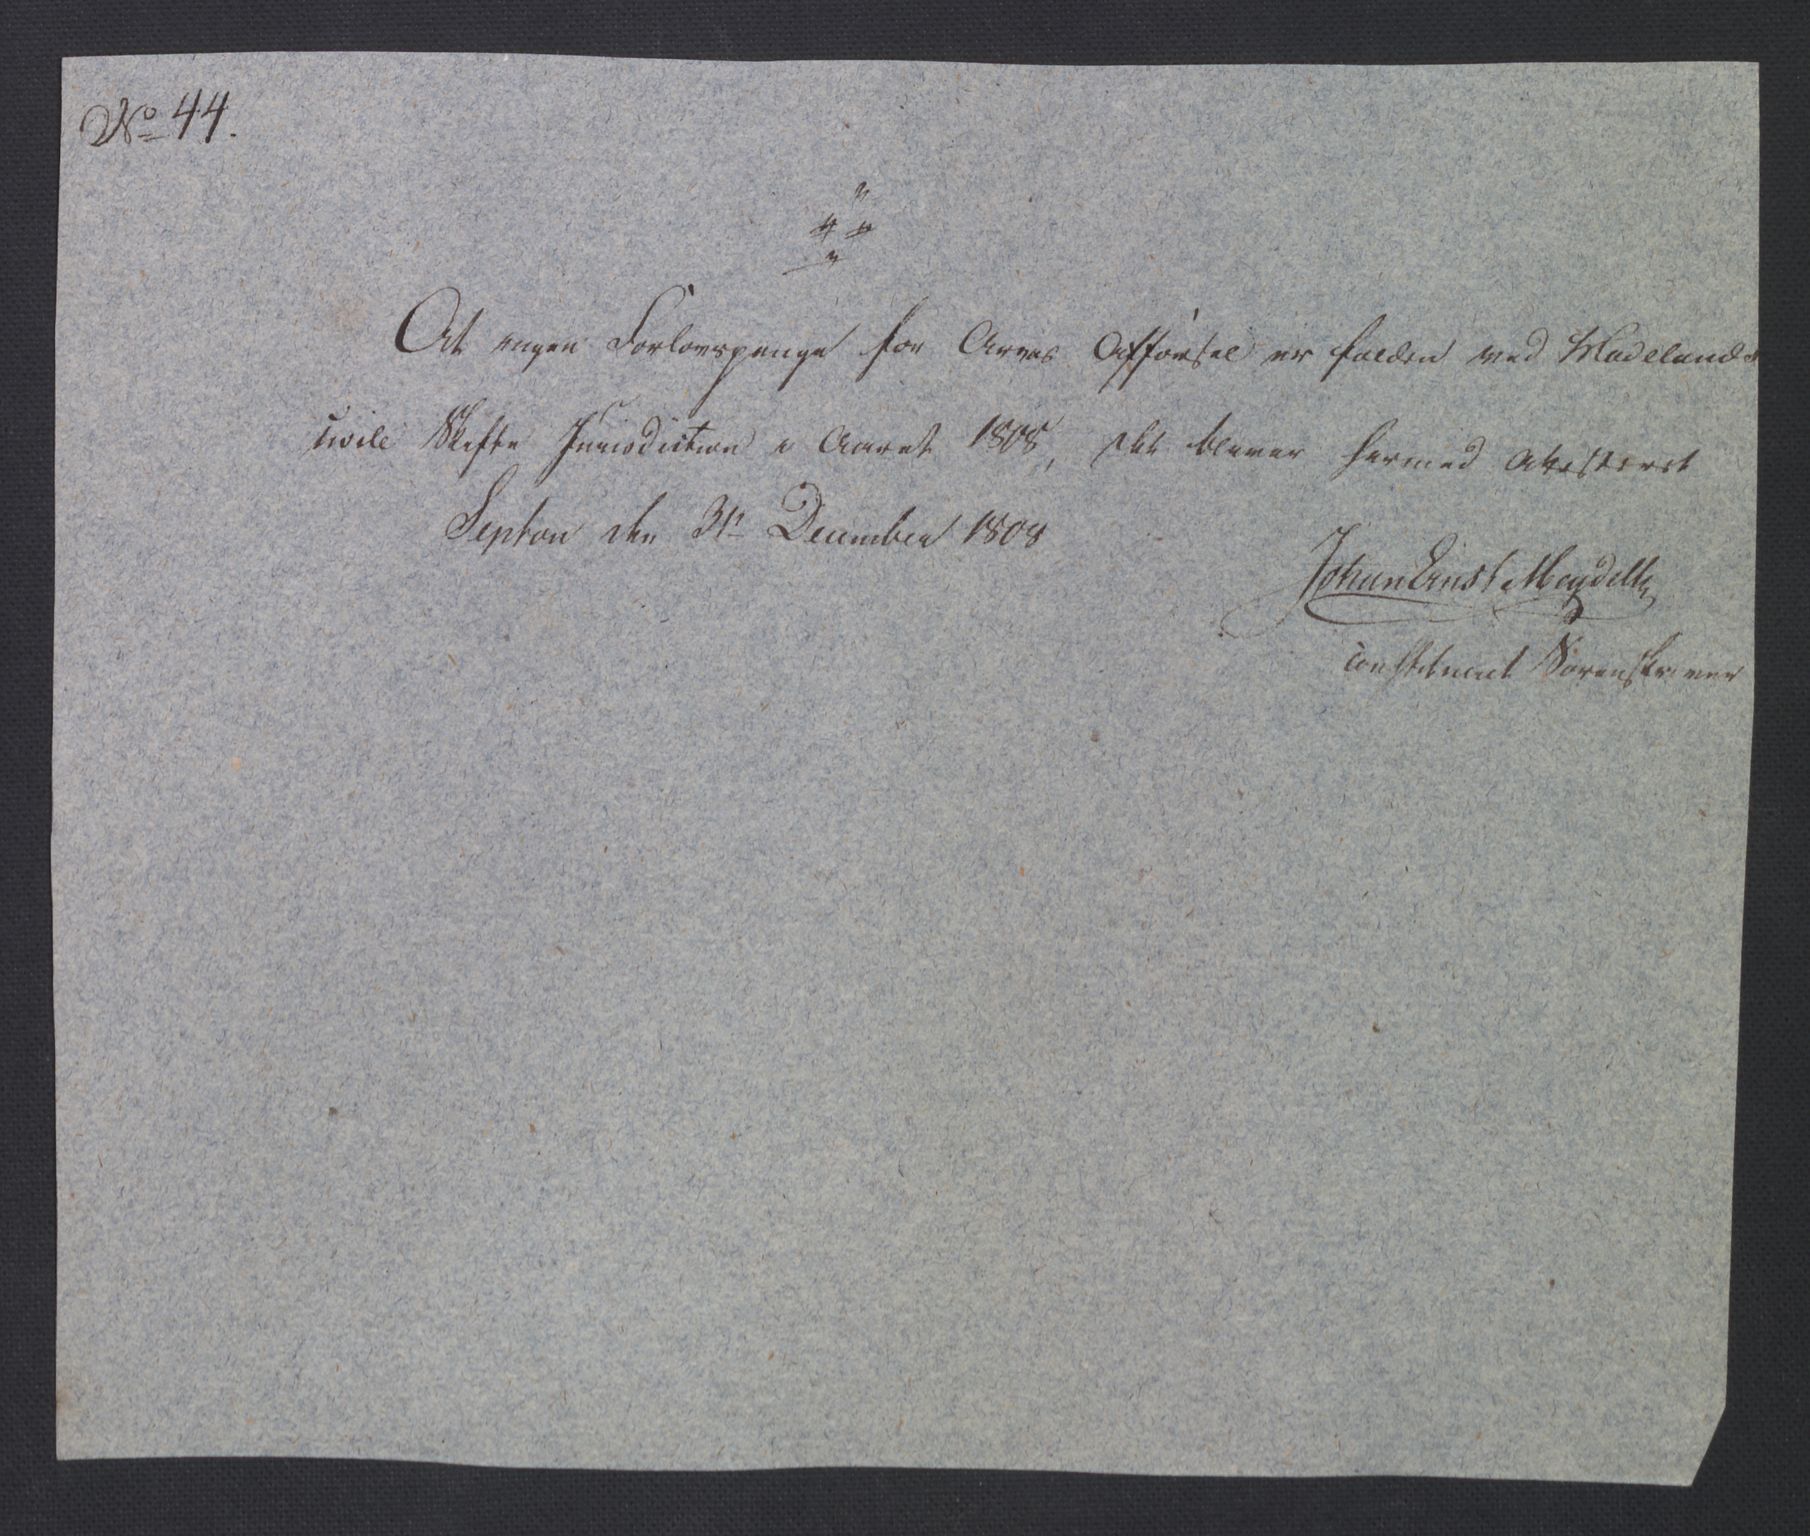 No 44.
At ingen Forlovspenge for Arves Afførsel er falden ved Mandlands
civile Skifte Jurisdiction i Aaret 1808, det bliver hermed Atesteret
den 31te December 1808
Johan Ernst Meydell
constitueret Sorenskriver